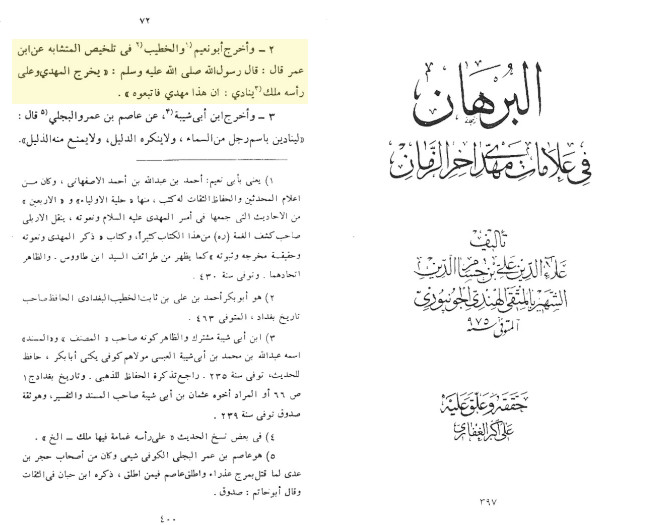 البرهان
في علامات مهدي آخر الزمان
تأليف
علاء الدين علي بن حسام الدين
الشهير بالمتقي الهندي الجونبوري
المتوفى سنة ٩٧٥
حققه وعلق عليه
علي أكبر الغفاري
٣٩٧
٧٢
٢ – وأخرج أبو نعيم(١) والخطيب(٢) في تلخيص المتشابه عن ابن
عمر قال : قال رسول الله صلى الله عليه وسلم : « يخرج المهدي وعلى
رأسه ملك(٣) ينادي : ان هذا مهدي فاتبعوه » .
٣ – وأخرج ابن أبي شيبة(٣)، عن عاصم بن عمرو البجلي(٥) قال :
«لينادين باسم رجل من السماء ، ولاينكره الدليل، ولايمنع منه الذليل».
١) يعني بأبي نعيم: أحمد بن عبدالله بن أحمد الاصفهاني ، وكان مـن
اعلام المحدثين والحفاظ الثقات له كتب ، منها « حلية الاولياء» و « الاربعين »
من الاحاديث التي جمعها في أمر المهدي عليه السلام ونعوته ، ينقل الاربلي
صاحب كشف الغمة (ره) من هذا الكتاب كثيراً، وكتاب « ذكر المهدي ونعوته
وحقيقـة مخرجه وثبوته » كما يظهر من طرائف السيد ابن طاووس. والظاهر
اتحادهما . وفي سنة ٤٣٠ .
٢) هو أبوبكر أحمد بن علي بن ثابت الخطيب البغدادي الحافظ صاحب
تاريخ بغداد ، المتوفى ٤٦٣ .
٣) ابن أبي شيبة مشترك والظاهر كونه صاحب « المصنف » و«المسند»
اسمه عبدالله بن محمد بن أبي شيبة العبسي مولاهم كوفي يكنى أبابكر ، حافظ
للحديث، توفى سنة ٢٣٥ . راجع تذكرة الحفاظ للذهبي . وتاريخ بغداد ج١
ص ٦٦ أو المراد أخوه عثمان بن أبي شيبة صاحب المسند والتفسير، وهو ثقة
صدوق توفى سنة ٢٣٩ .
٤) في بعض نسخ الحديث « على رأسه غمامة فيها ملك – الخ » .
٥) هو عاصم بن عمر البجلي الكوفي شيعي وكان من أصحاب حجر بن
عدى لما قتل بمرج عذراء واطلق عاصم فيمن اطلق ، ذكره ابن حبان في الثقات
وقال أبو حاتم : صدوق .
٤٠٠